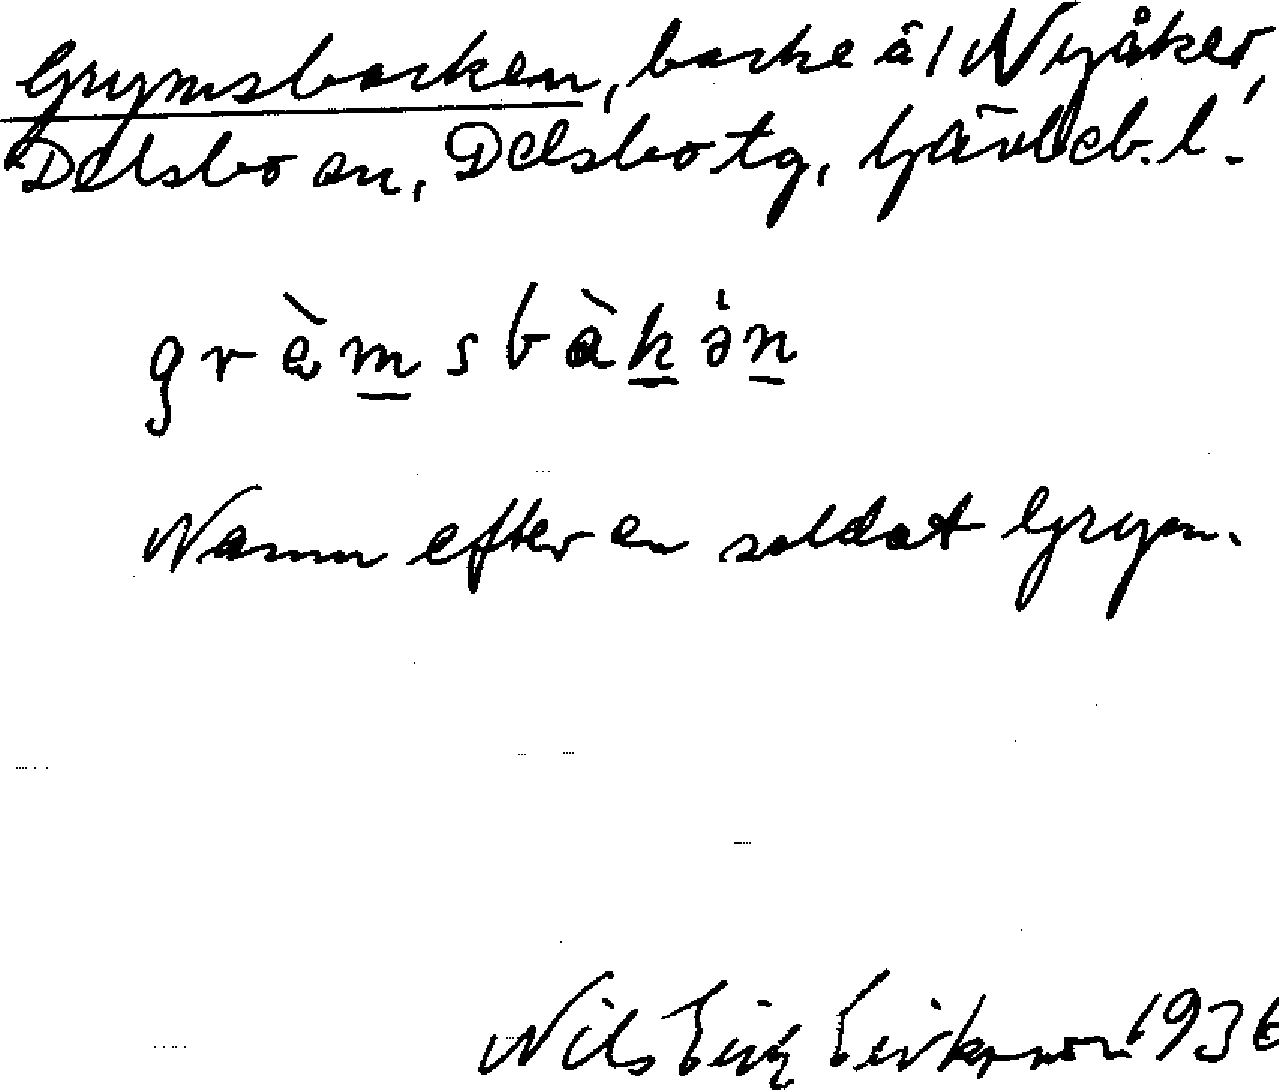 Grymsbacken, backe å 1 Nyåker,
Delsbo sn, Delsbo tg, Gävleb. l.
Namn efter en soldat Grym.
Nils Erik Eriksson 1936